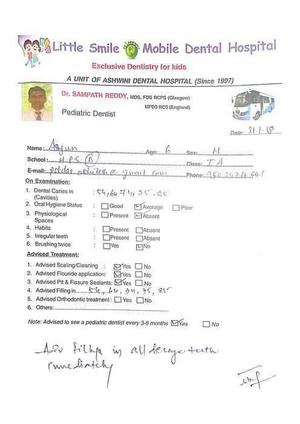 Little Smile Mobile Dental Hospital
Exclusive Dentistry for kids
A UNIT OF ASHWINI DENTAL HOSPITAL (Since 1997)
Dr. SAMPATH REDDY, MDS, FDS RCPS (Glasgow)
MFDS RCS (England)
Pediatric Dentist
Date:
Name: Arjun Age: 6 Sex: M
School: HPS (B) Class: I A
E-mail: gmail com Phone:
On Examination:
1. Dental Caries in (Cavities) :
2. Oral Hygiene Status : Good Average Poor
3. Physiological Spaces : Present Absent
4. Habits : Present Absent
5. Irregular teeth : Present Absent
6. Brushing twice : Yes No
Advised Treatment:
1. Advised Scaling/Cleaning : Yes No
2. Advised Flouride application: Yes No
3. Advised Pit & Fissure Sealants: Yes No
4. Advised Filling in
5. Advised Orthodontic treatment : Yes No
6. Others:
Note: Advised to see a pediatric dentist every 3-6 months Yes No
Adv filling in all decay teeth
immediately